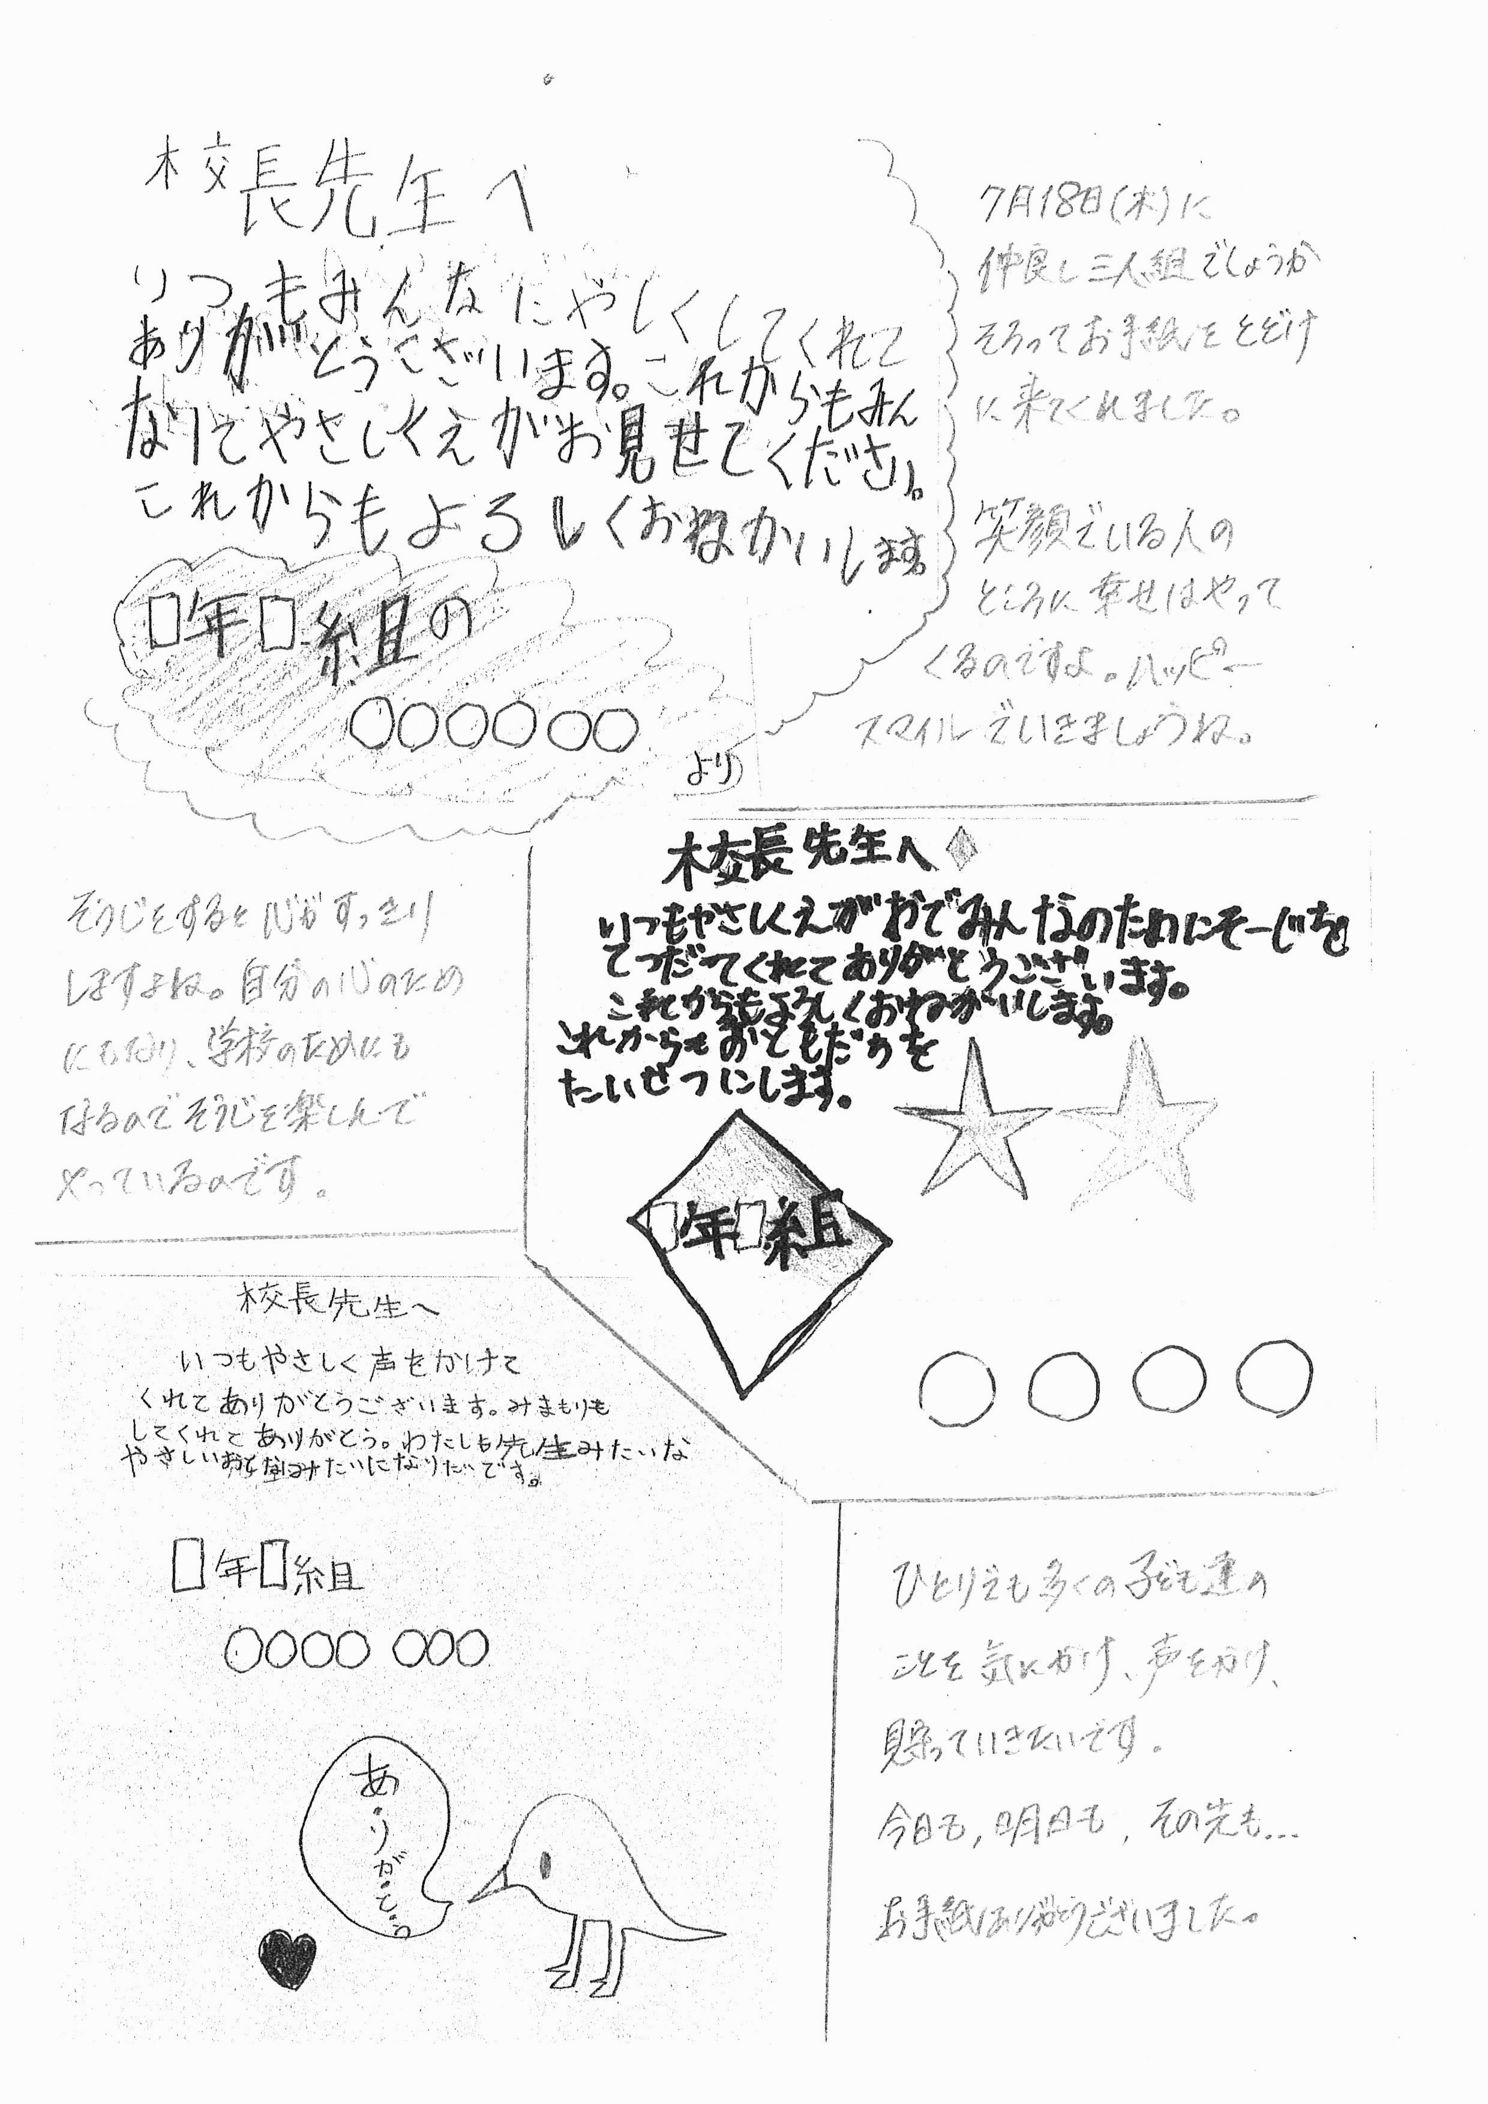 校長先生へ
いつもみんなにやしくしてくれて
ありがとうございます。これからもみん
なにてやさしくえがお見せてください。
これからもよろしくおねかいします。
□年□組の
○○○○○○
より
7月18日(木)に
仲良し三人組でしょうか
そろってお手紙をとどけ
に来てくれました。
笑顔でいる人の
ところに幸せはやって
くるのですよ。ハッピー
スマイルでいきましょうね。
校長先生へ
いつもやさしくえがおでみんなのためにそーじを
てつだってくれてありがとうございます。
これからもよろしくおねがいします。
これからもおともだちを
たいせつにします。
□年□組
○○○○
そうじをすると心がすっきり
しますよね。自分の心のため
にもなり、学校のためにも
なるのでそうじを楽しんで
やっているのです。
校長先生へ
いつもやさしく声をかけて
くれてありがとうございます。みまもりも
してくれてありがとう。わたしも先生みたいな
やさしいおとなみたいになりたいです。
□年□組
○○○○ ○○○
ありがとう
ひとりでも多くの子ども達の
ことを気にかけ、声をかけ、
見守っていきたいです。
今日も, 明日も, その先も...
お手紙ありがとうございました。